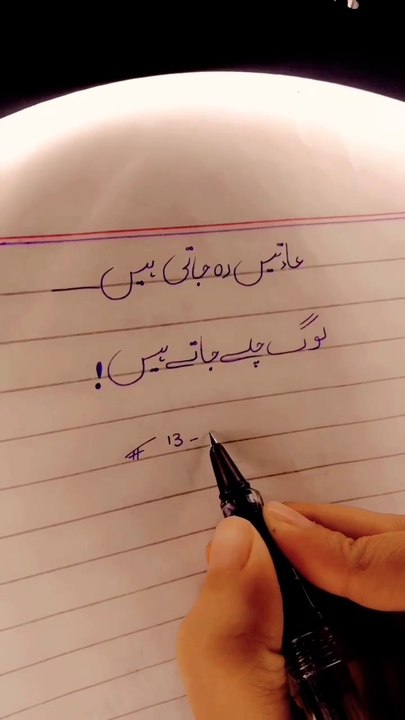 عادتیں رہ جاتی ہیں ـــــ
لوگ چلے جاتے ہیں !
# 13 -